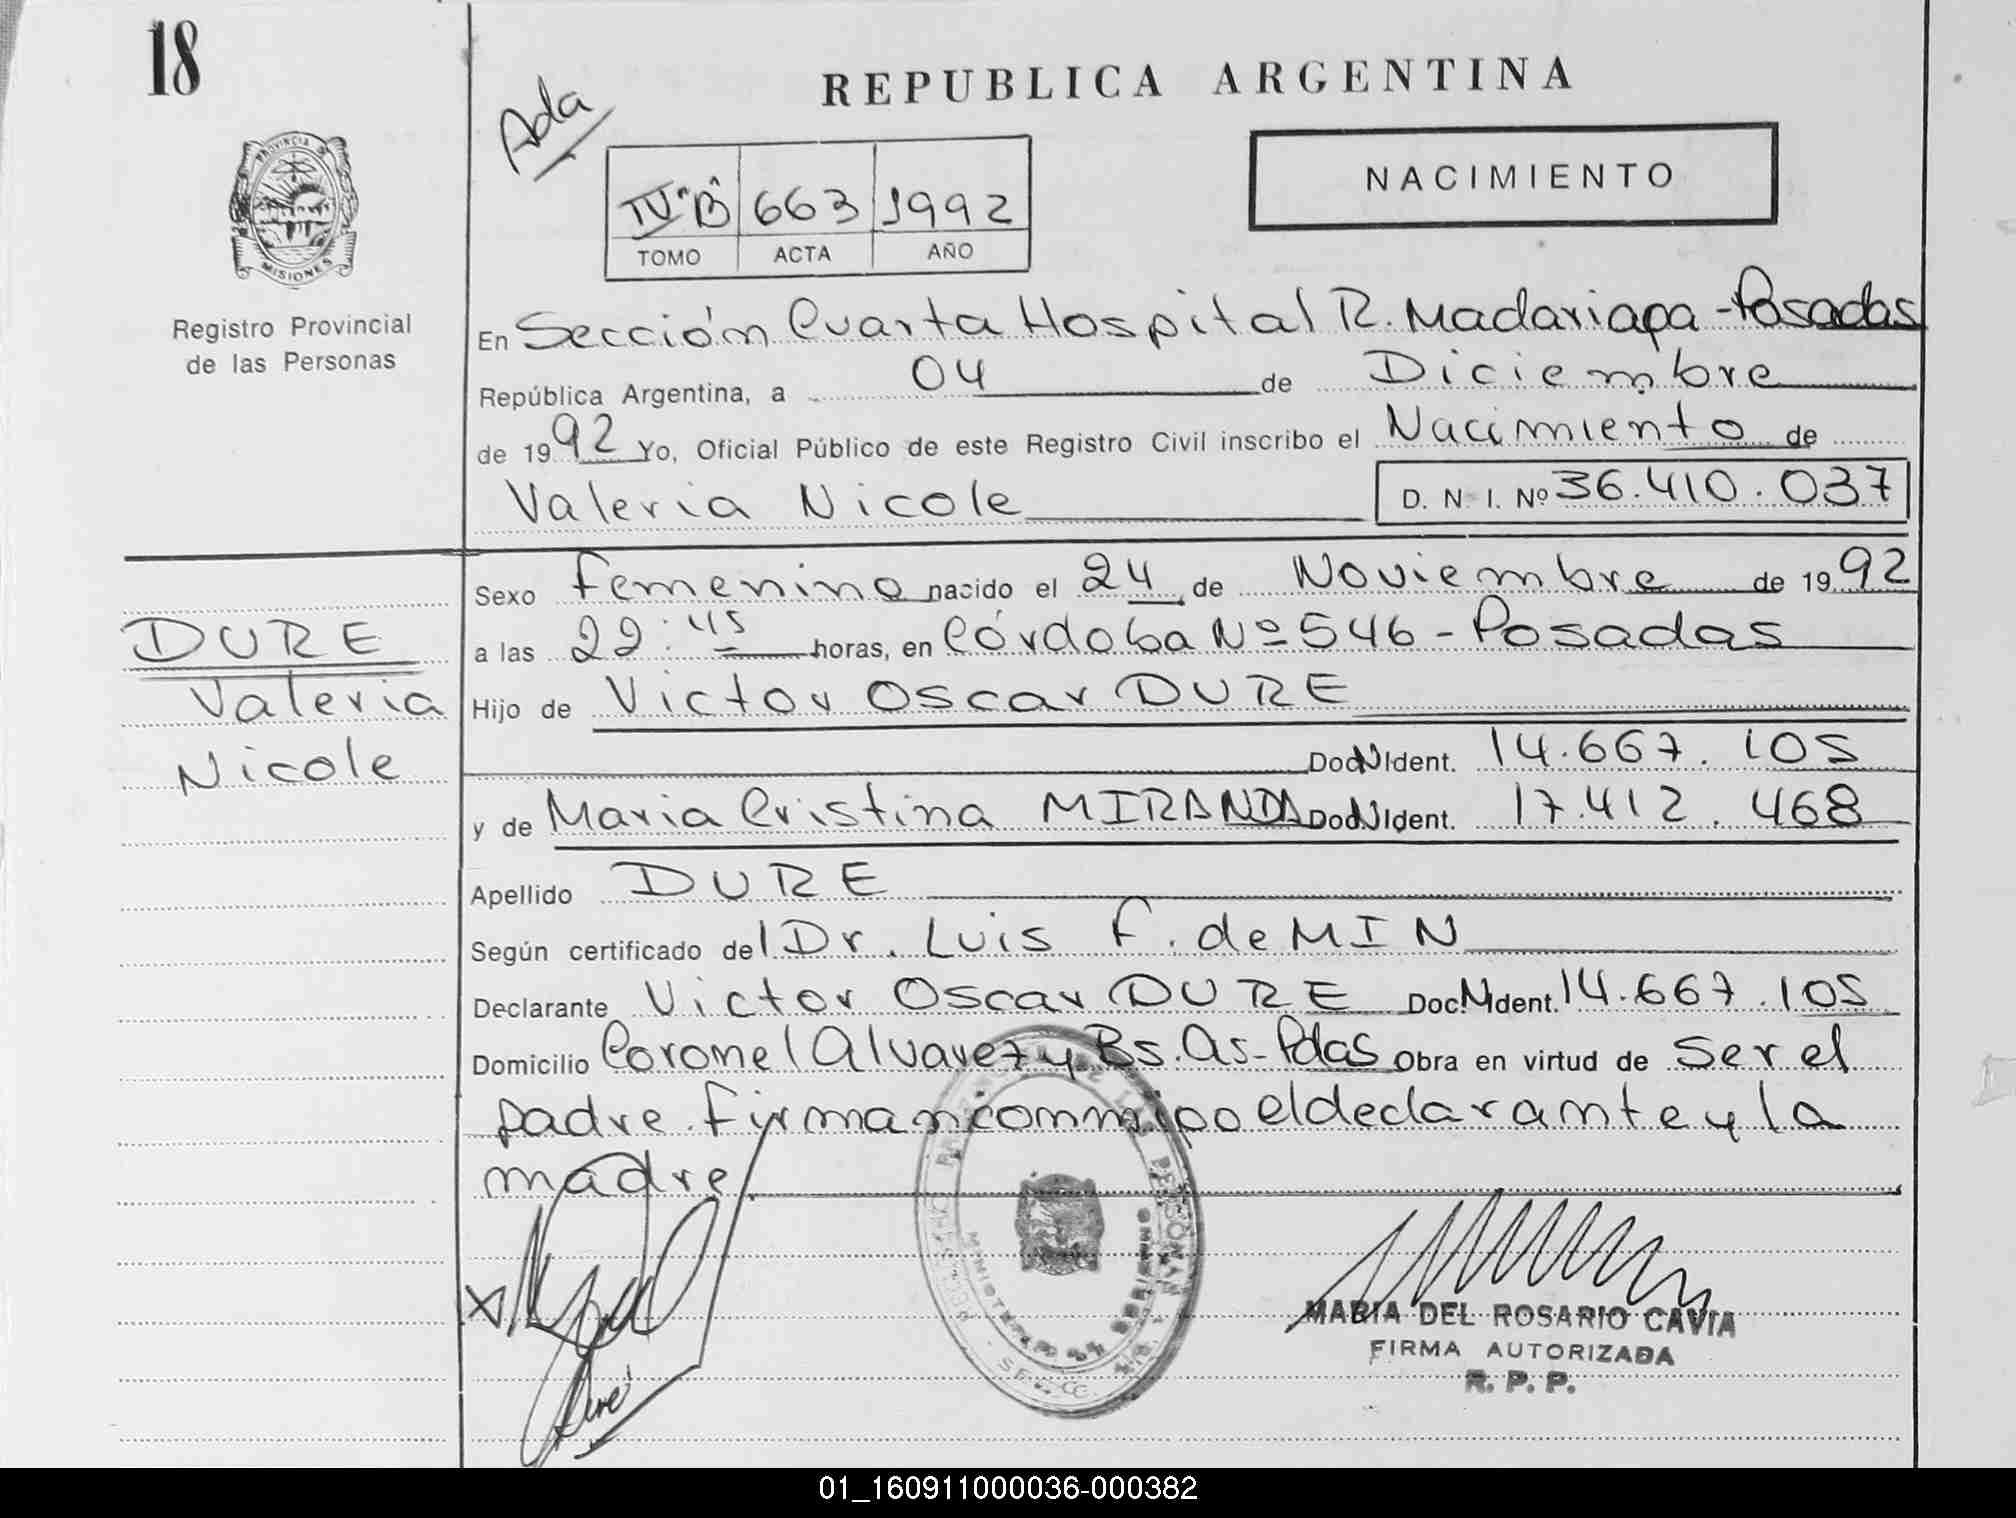 18
REPUBLICA ARGENTINA
Ada
NACIMIENTO
IV"B" 663 1992
TOMO ACTA AÑO
PROVINCIA DE
MISIONES
Registro Provincial
de las Personas
En Sección Cuarta Hospital R. Madariaga - Posadas
República Argentina, a 04 de Diciembre
de 1992 Yo, Oficial Público de este Registro Civil inscribo el Nacimiento de
Valeria Nicole D. N. I. Nº 36.410.037
Sexo femenino nacido el 24 de Noviembre de 1992
DURE
a las 22:45 horas, en Córdoba Nº 546 - Posadas
Valeria
Hijo de Victor Oscar DURE
Nicole
Doc N Ident. 14.667.105
y de Maria Cristina MIRANDA Doc N Ident. 17.412.468
Apellido DURE
Según certificado del Dr. Luis F. de MIN
Declarante Victor Oscar DURE Doc. N Ident. 14.667.105
Domicilio Coronel Alvarez y Bs. As - Pdas Obra en virtud de ser el
padre. firman conmigo el declarante y la
madre.
MARIA DEL ROSARIO CAVIA
FIRMA AUTORIZADA
R. P. P.
Duré
01_160911000036-000382